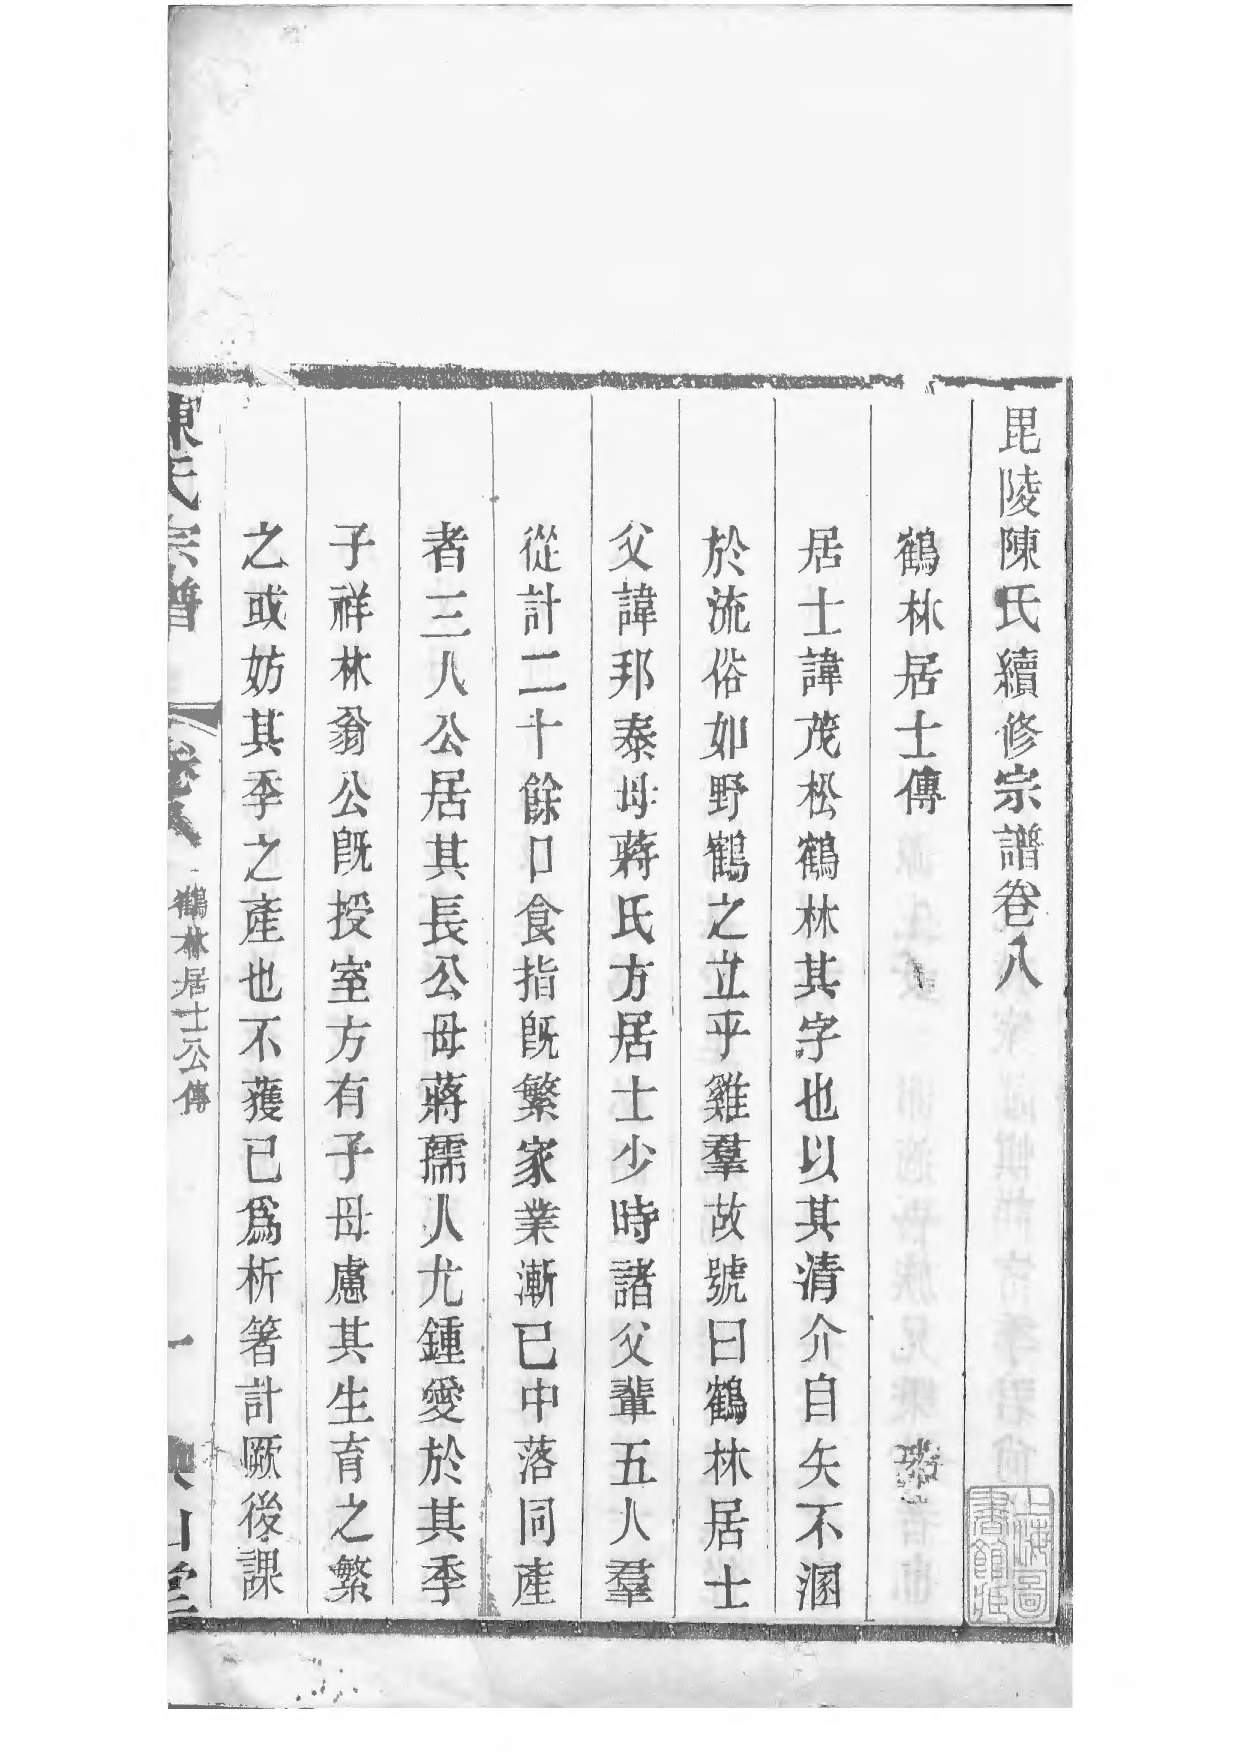 毘陵陳氏續修宗譜卷八
鶴林居士傳
居士諱茂松鶴林其字也以其清介自矢不溷
於流俗如野鶴之立乎雞羣故號曰鶴林居士
父諱邦泰母蔣氏方居士少時諸父輩五人羣
從計二十餘口食指旣繁家業漸已中落同產
者三人公居其長公母蔣孺人尤鍾愛於其季
子祥林翁公旣授室方有子母慮其生育之繁
之或妨其季之產也不獲已爲析箸計厥後課
陳氏宗譜
卷八
鶴林居士公傳
一
上海圖書館藏